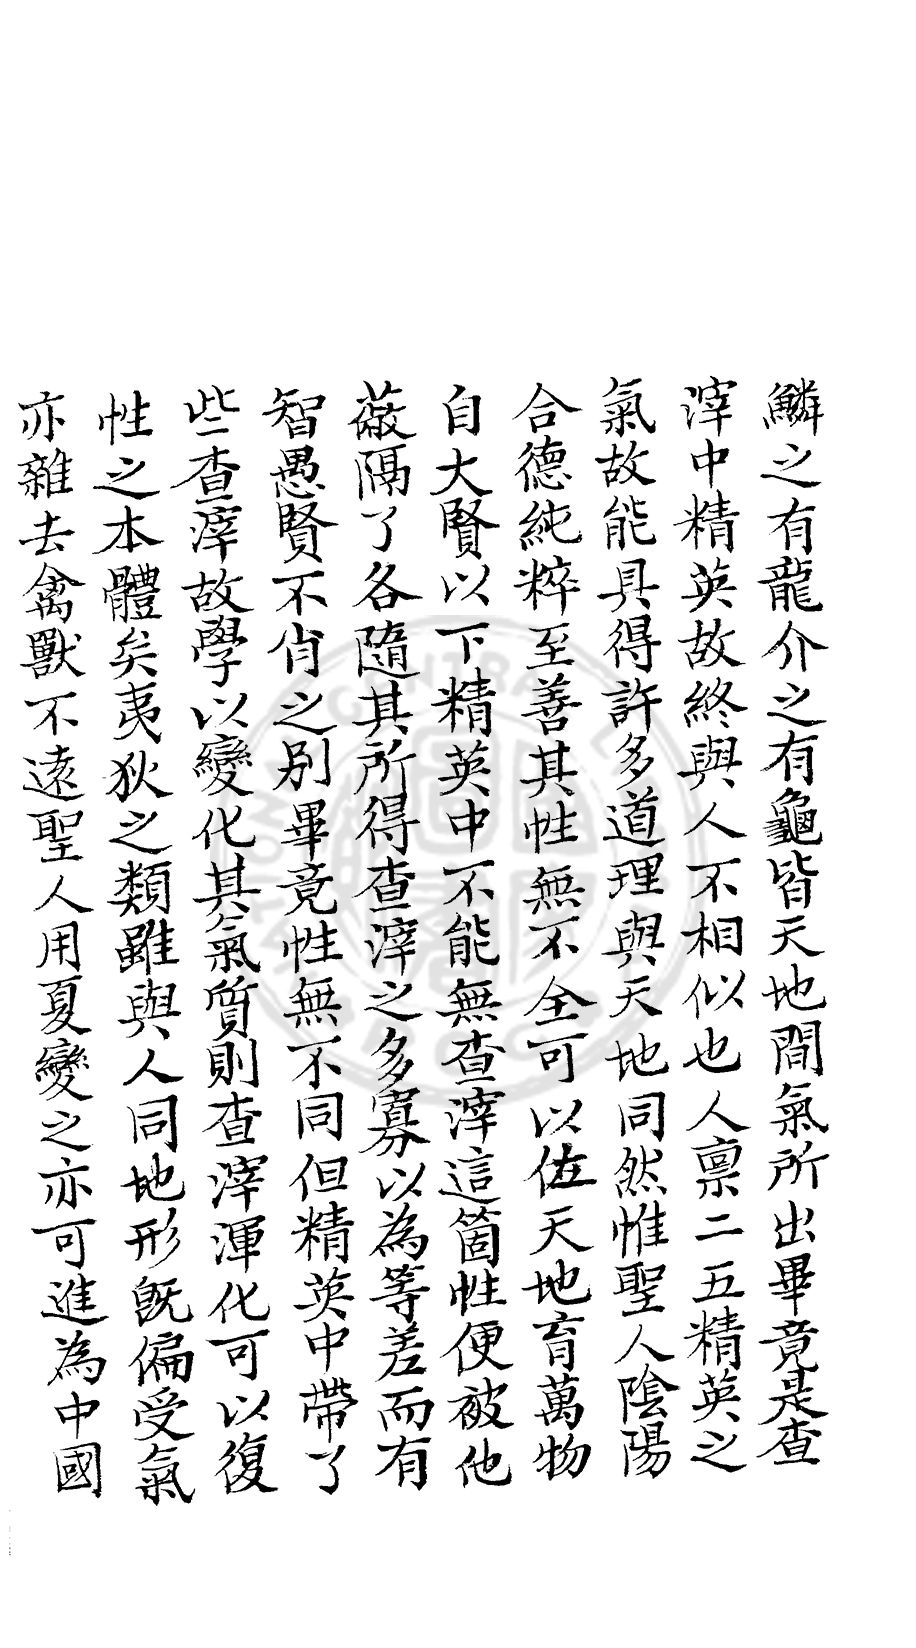 鱗之有龍介之有龜皆天地間氣所出畢竟是查
滓中精英故終與人不相似也人稟二五精英之
氣故能具得許多道理與天地同然惟聖人陰陽
合德純粹至善其性無不全可以佐天地育萬物
自大賢以下精英中不能無查滓這箇性便被他
蔽隔了各隨其所得查滓之多寡以為等差而有
智愚賢不肖之別畢竟性無不同但精英中帶了
些查滓故學以變化其氣質則查滓渾化可以復
性之本體矣夷狄之類雖與人同地形旣偏受氣
亦雜去禽獸不遠聖人用夏變之亦可進為中國